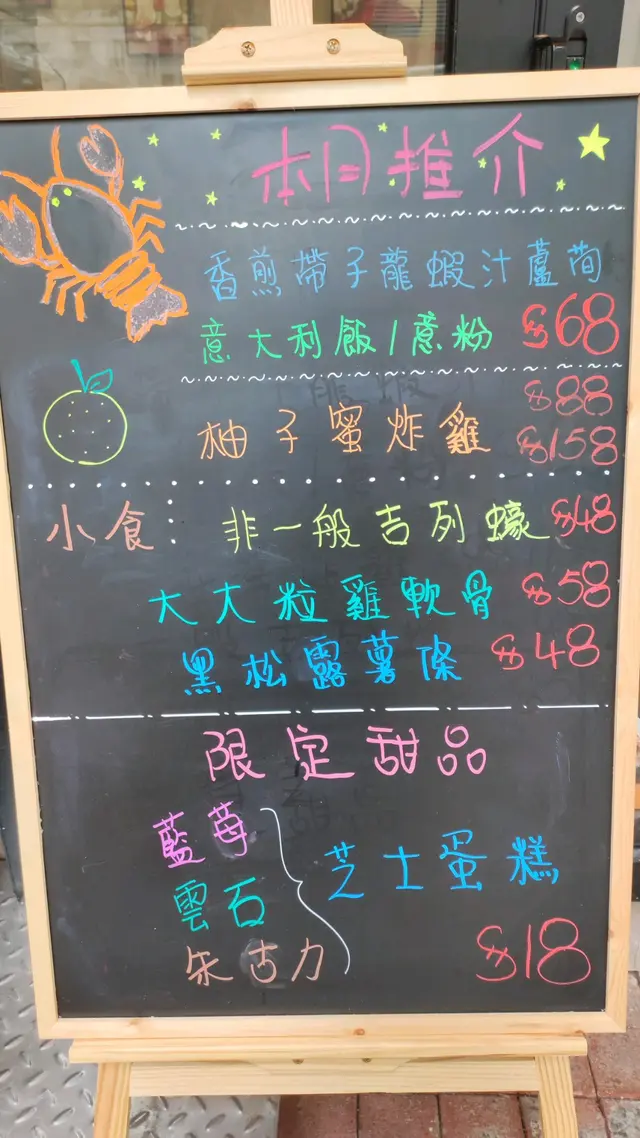 本月推介
香煎帶子龍蝦汁蘆荀
意大利飯/薏粉 $68
$88
柚子蜜炸雞 $158
小食: 非一般吉列蠔 $48
大大粒雞軟骨 $58
黑松露薯條 $48
限定甜品
藍莓
雲石 芝士蛋糕
朱古力 $18